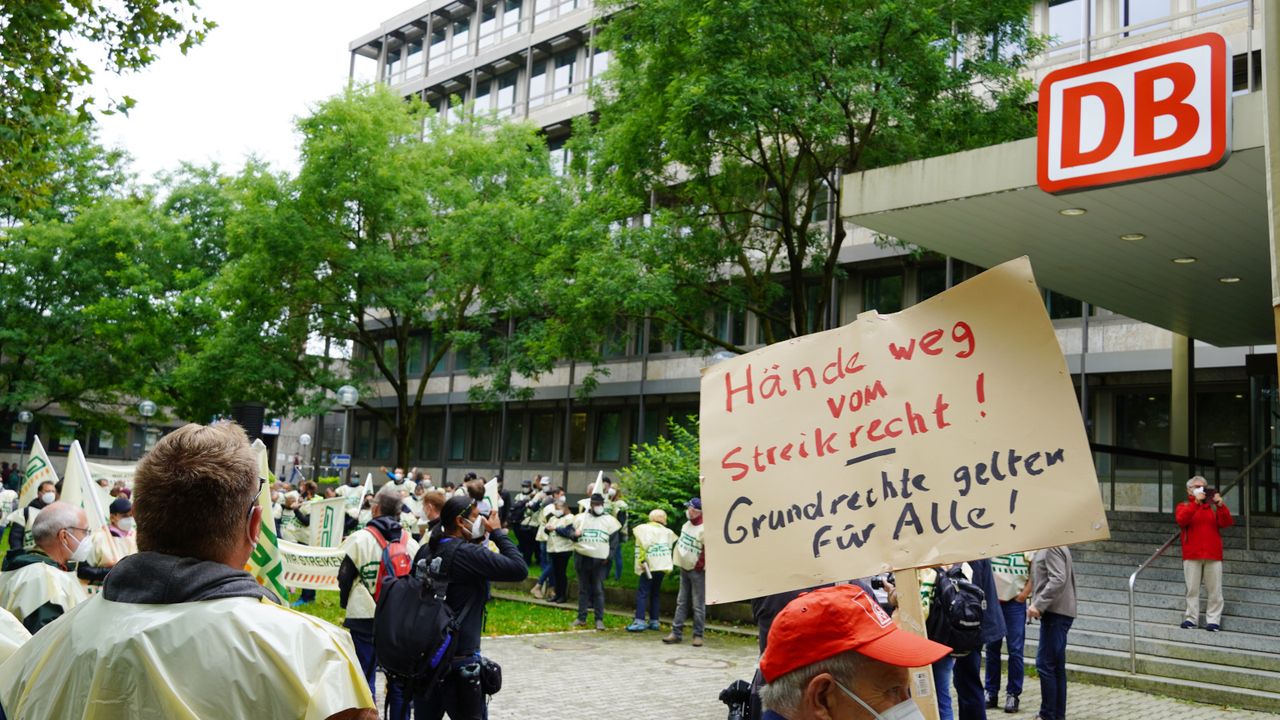 DB
Hände weg
vom
Streikrecht!
Grundrechte gelten
für Alle!
WIR STREIKEN